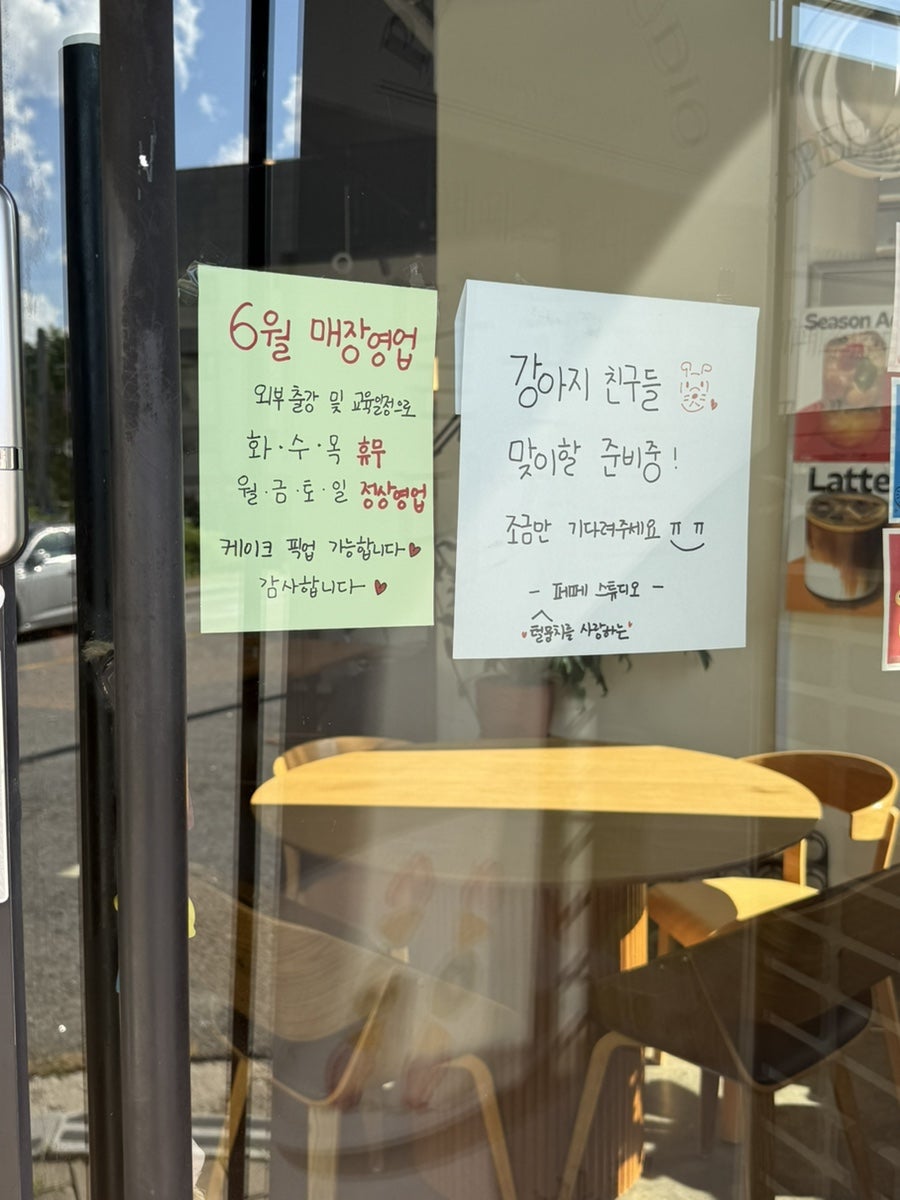 6월 매장영업
외부출강 및 교육일정으로
화·수·목 휴무
월·금·토·일 정상영업
케이크 픽업 가능합니다♥
감사합니다 ♥
강아지 친구들
맞이할 준비중!
조금만 기다려주세요 ㅠㅠ
- 페페 스튜디오 -
털뭉치를 사랑하는
Season A
Latte